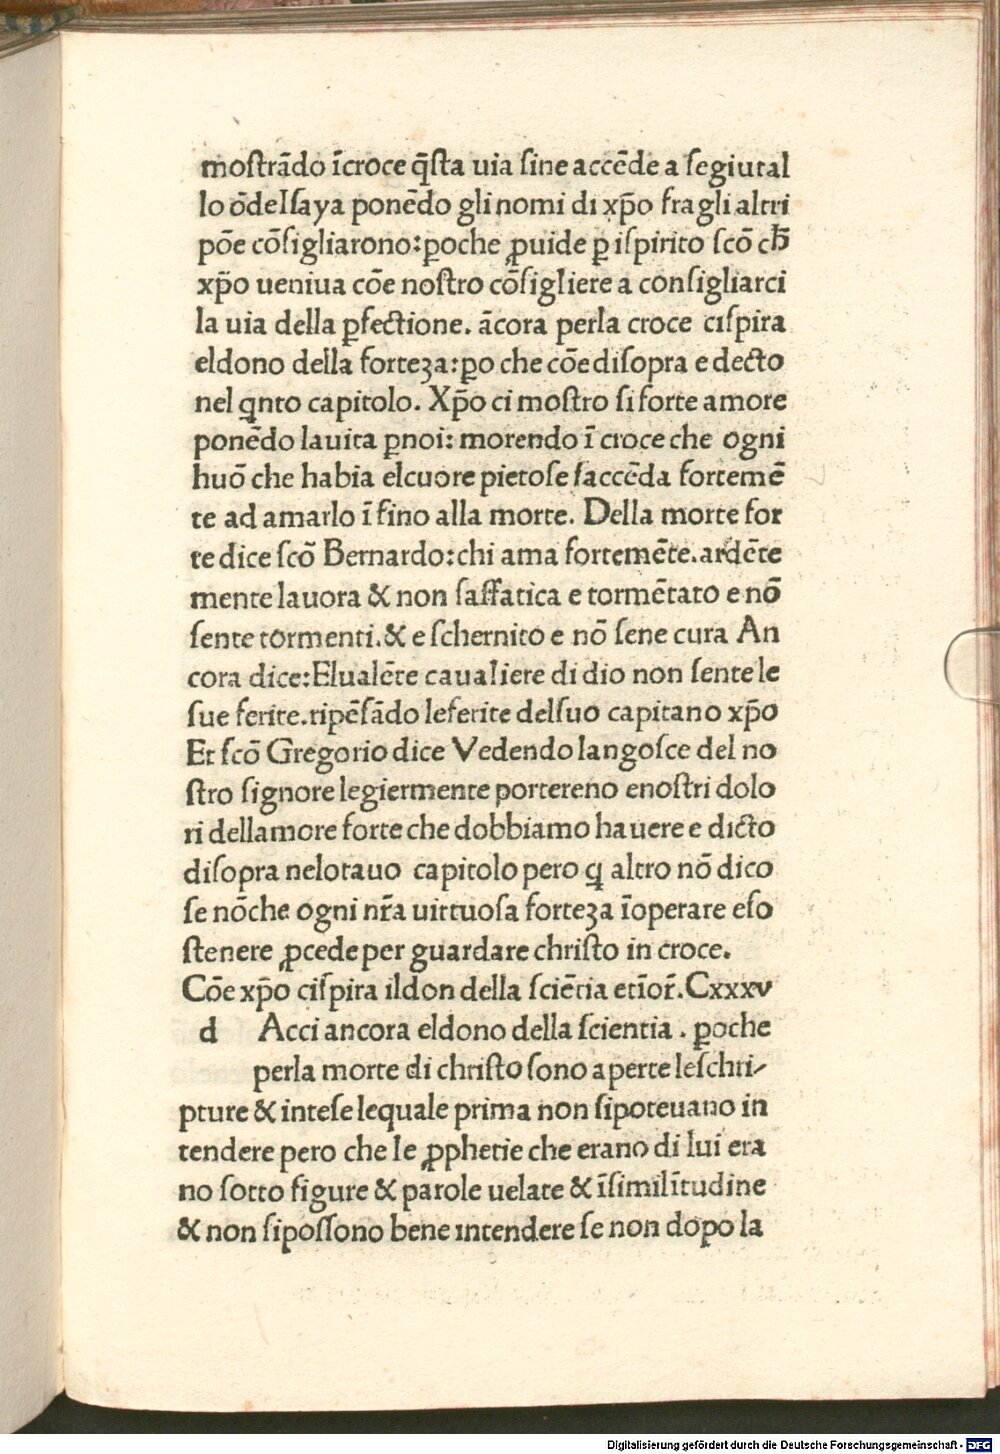 moſtrādo īcroce q̄ſta uia ſine accēde a ſegiutal
lo ōdeIſaya ponēdo gli nomi di xp̄o fragli altri
pōe cōſigliarono:ꝑoche ꝓuide ꝑ iſpirito ſcō ch̄
xp̄o ueniua cōe noſtro cōſigliere a conſigliarci
la uia della ꝑfectione. ācora perla croce ciſpira
eldono della forteʒa:ꝑo che cōe diſopra e decto
nel qnto capitolo. Xp̄o ci moſtro ſi forte amore
ponēdo lauita ꝑnoi: morendo ī croce che ogni
huō che habia elcuore pietoſe ſaccēda fortemē
te ad amarlo ī fino alla morte. Della morte for
te dice ſcō Bernardo:chi ama fortemēte.ardēte
mente lauora & non ſaffatica e tormētato e nō
ſente tormenti.& e ſchernito e nō ſene cura An
cora dice:Elualēte caualiere di dio non ſente le
ſue ferite.ripēſādo leferite delſuo capitano xp̄o
Et ſcō Gregorio dice Vedendo langoſce del no
ſtro ſignore legiermente portereno enoſtri dolo
ri dellamore forte che dobbiamo hauere e dicto
diſopra nelotauo capitolo pero q altro nō dico
ſe nōche ogni nr̄a uirtuoſa forteʒa īoperare eſo
ſtenere ꝓcede per guardare chriſto in croce.
Cōe xp̄o ciſpira ildon della ſciētia etīor̄.Cxxxv
d Acci ancora eldono della ſcientia . ꝑoche
perla morte di chriſto ſono aperte leſchri-
pture & inteſe lequale prima non ſipoteuano in
tendere pero che le ꝓphetie che erano di lui era
no ſotto figure & parole uelate & īſimilītudine
& non ſipoſſono bene intendere ſe non dopo la
Digitalisierung gefördert durch die Deutsche Forschungsgemeinschaft - DFG